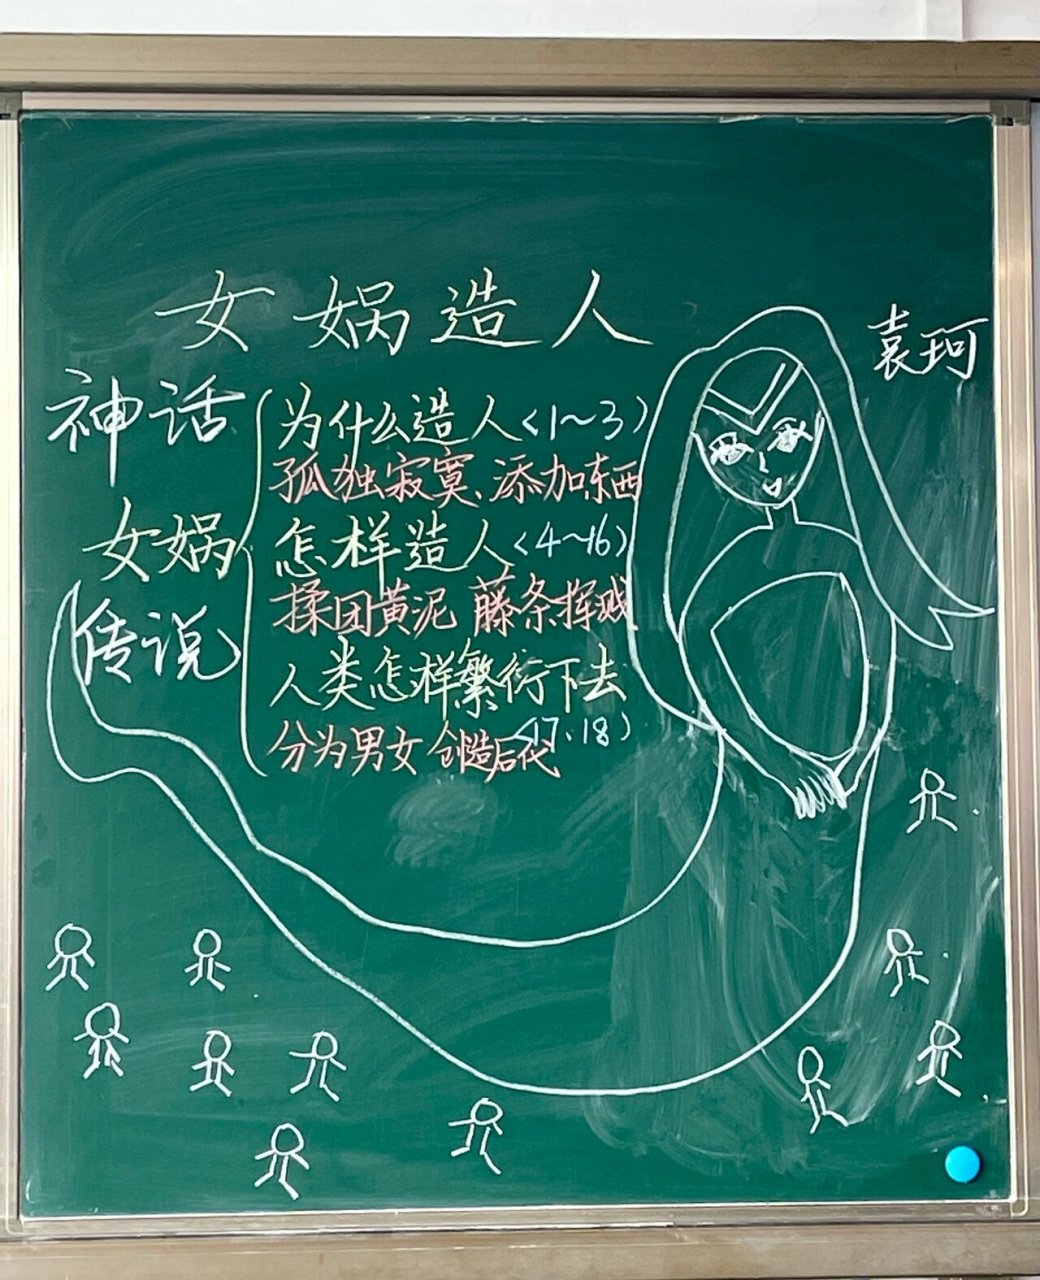 女娲造人
袁珂
神话
女娲
传说
为什么造人<1~3>
孤独寂寞、添加东西
怎样造人<4~16>
揉团黄泥 藤条挥溅
人类怎样繁衍下去
<17、18>
分为男女 创造后代